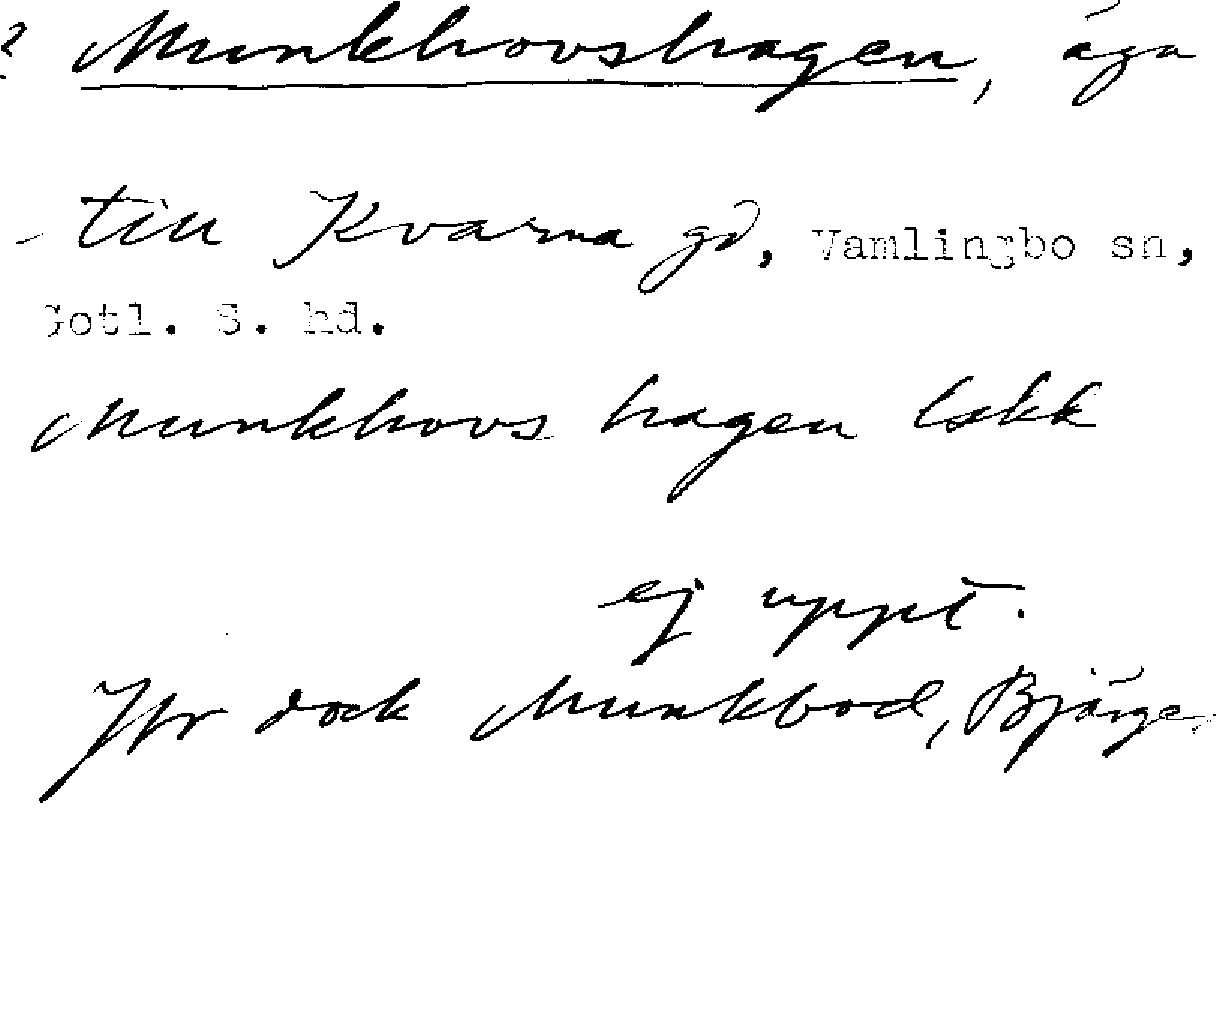 ? Munkhovshagen, äga
till Kvarna gd, Vamlingbo sn,
Gotl. S. hd.
Munkhovs hagen lskk
ej uppt.
Jfr dock Munkbod, Bjärges